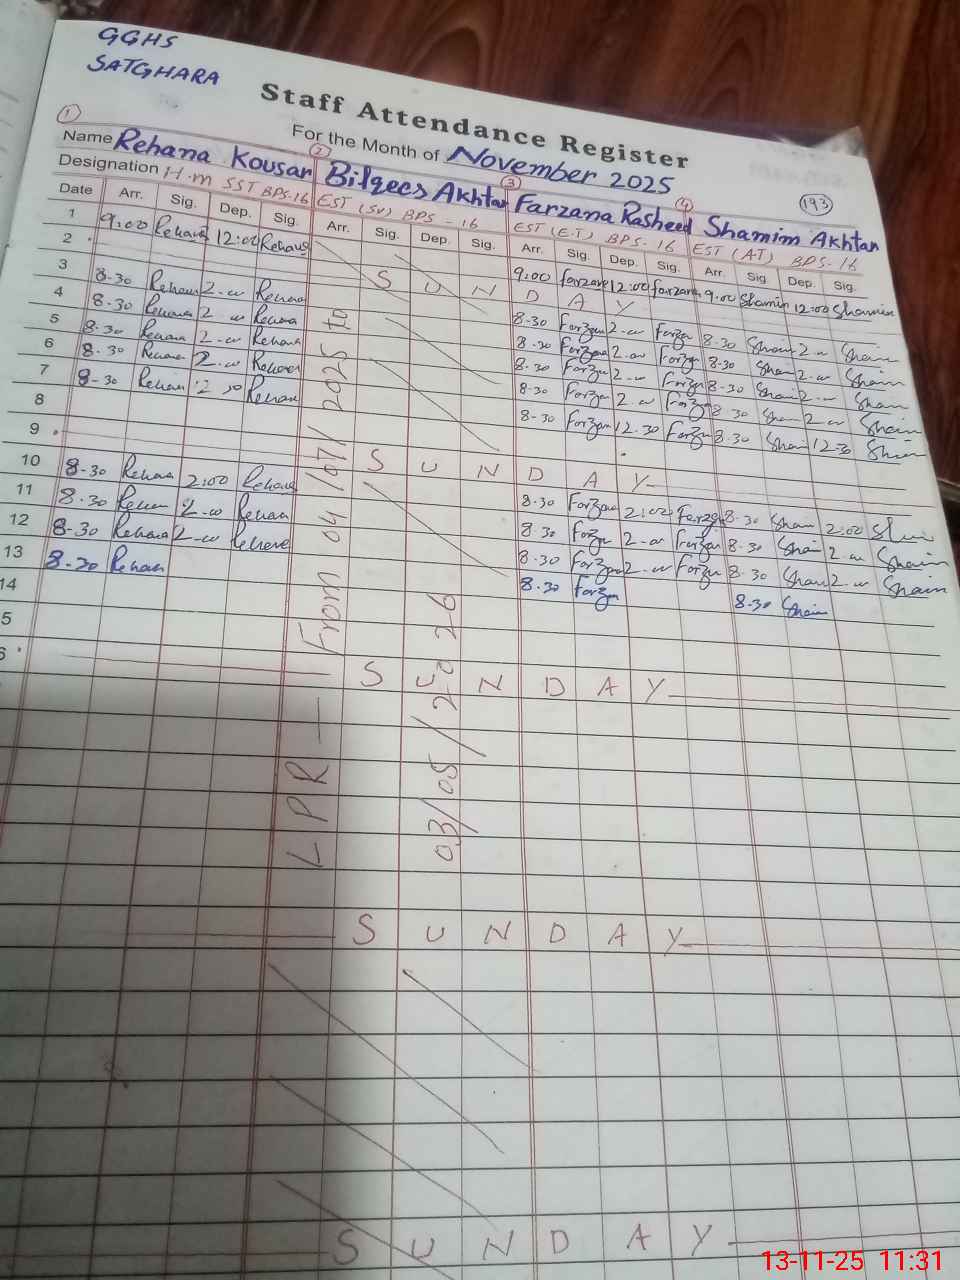 GGHS
SATGHARA
Staff Attendance Register
For the Month of November 2025
193
1 2 3 4
Name Rehana Kousar Bilqees Akhtar Farzana Rasheed Shamim Akhtar
Designation H.m SST BPS-16 EST (SV) BPS - 16 EST (E.T) BPS-16 EST (AT) BPS-16
Date Arr. Sig. Dep. Sig. Arr. Sig. Dep. Sig. Arr. Sig. Dep. Sig. Arr. Sig. Dep. Sig.
1 9:00 Rehana 12:00 Rehana 9:00 farzana 12:00 farzana 9:00 Shamim 12:00 Shamim
2 S U N D A Y
3 8-30 Rehana 2-00 Rehana 8-30 Farzan 2-00 Farzan 8-30 Sham 2-00 Sham
4 8-30 Rehana 2-00 Rehana 8-30 Farzan 2-00 Farzan 8-30 Sham 2-00 Sham
5 8-30 Rehana 2-00 Rehana 8-30 Farzan 2-00 Farzan 8-30 Sham 2-00 Sham
6 8-30 Rehana 2-00 Rehana 8-30 Farzan 2-00 Farzan 8-30 Sham 2-00 Sham
7 8-30 Rehana 12 30 Rehana 8-30 Farzan 12.30 Farzan 8-30 Sham 12-30 Sham
8
9 S U N D A Y
10 8-30 Rehana 2:00 Rehana 8-30 Farzan 2:00 Farzan 8-30 Sham 2:00 Sham
11 8-30 Rehana 2-00 Rehana 8-30 Farzan 2-00 Farzan 8-30 Sham 2-00 Sham
12 8-30 Rehana 2-00 Rehana 8-30 Farzan 2-00 Farzan 8-30 Sham 2-00 Sham
13 8-30 Rehan 8-30 Farzan 8-30 Sham
14
5
6 S U N D A Y
LPR — From 04/07/2025 to
03/05/2026
S U N D A Y
S U N D A Y
13-11-25 11:31